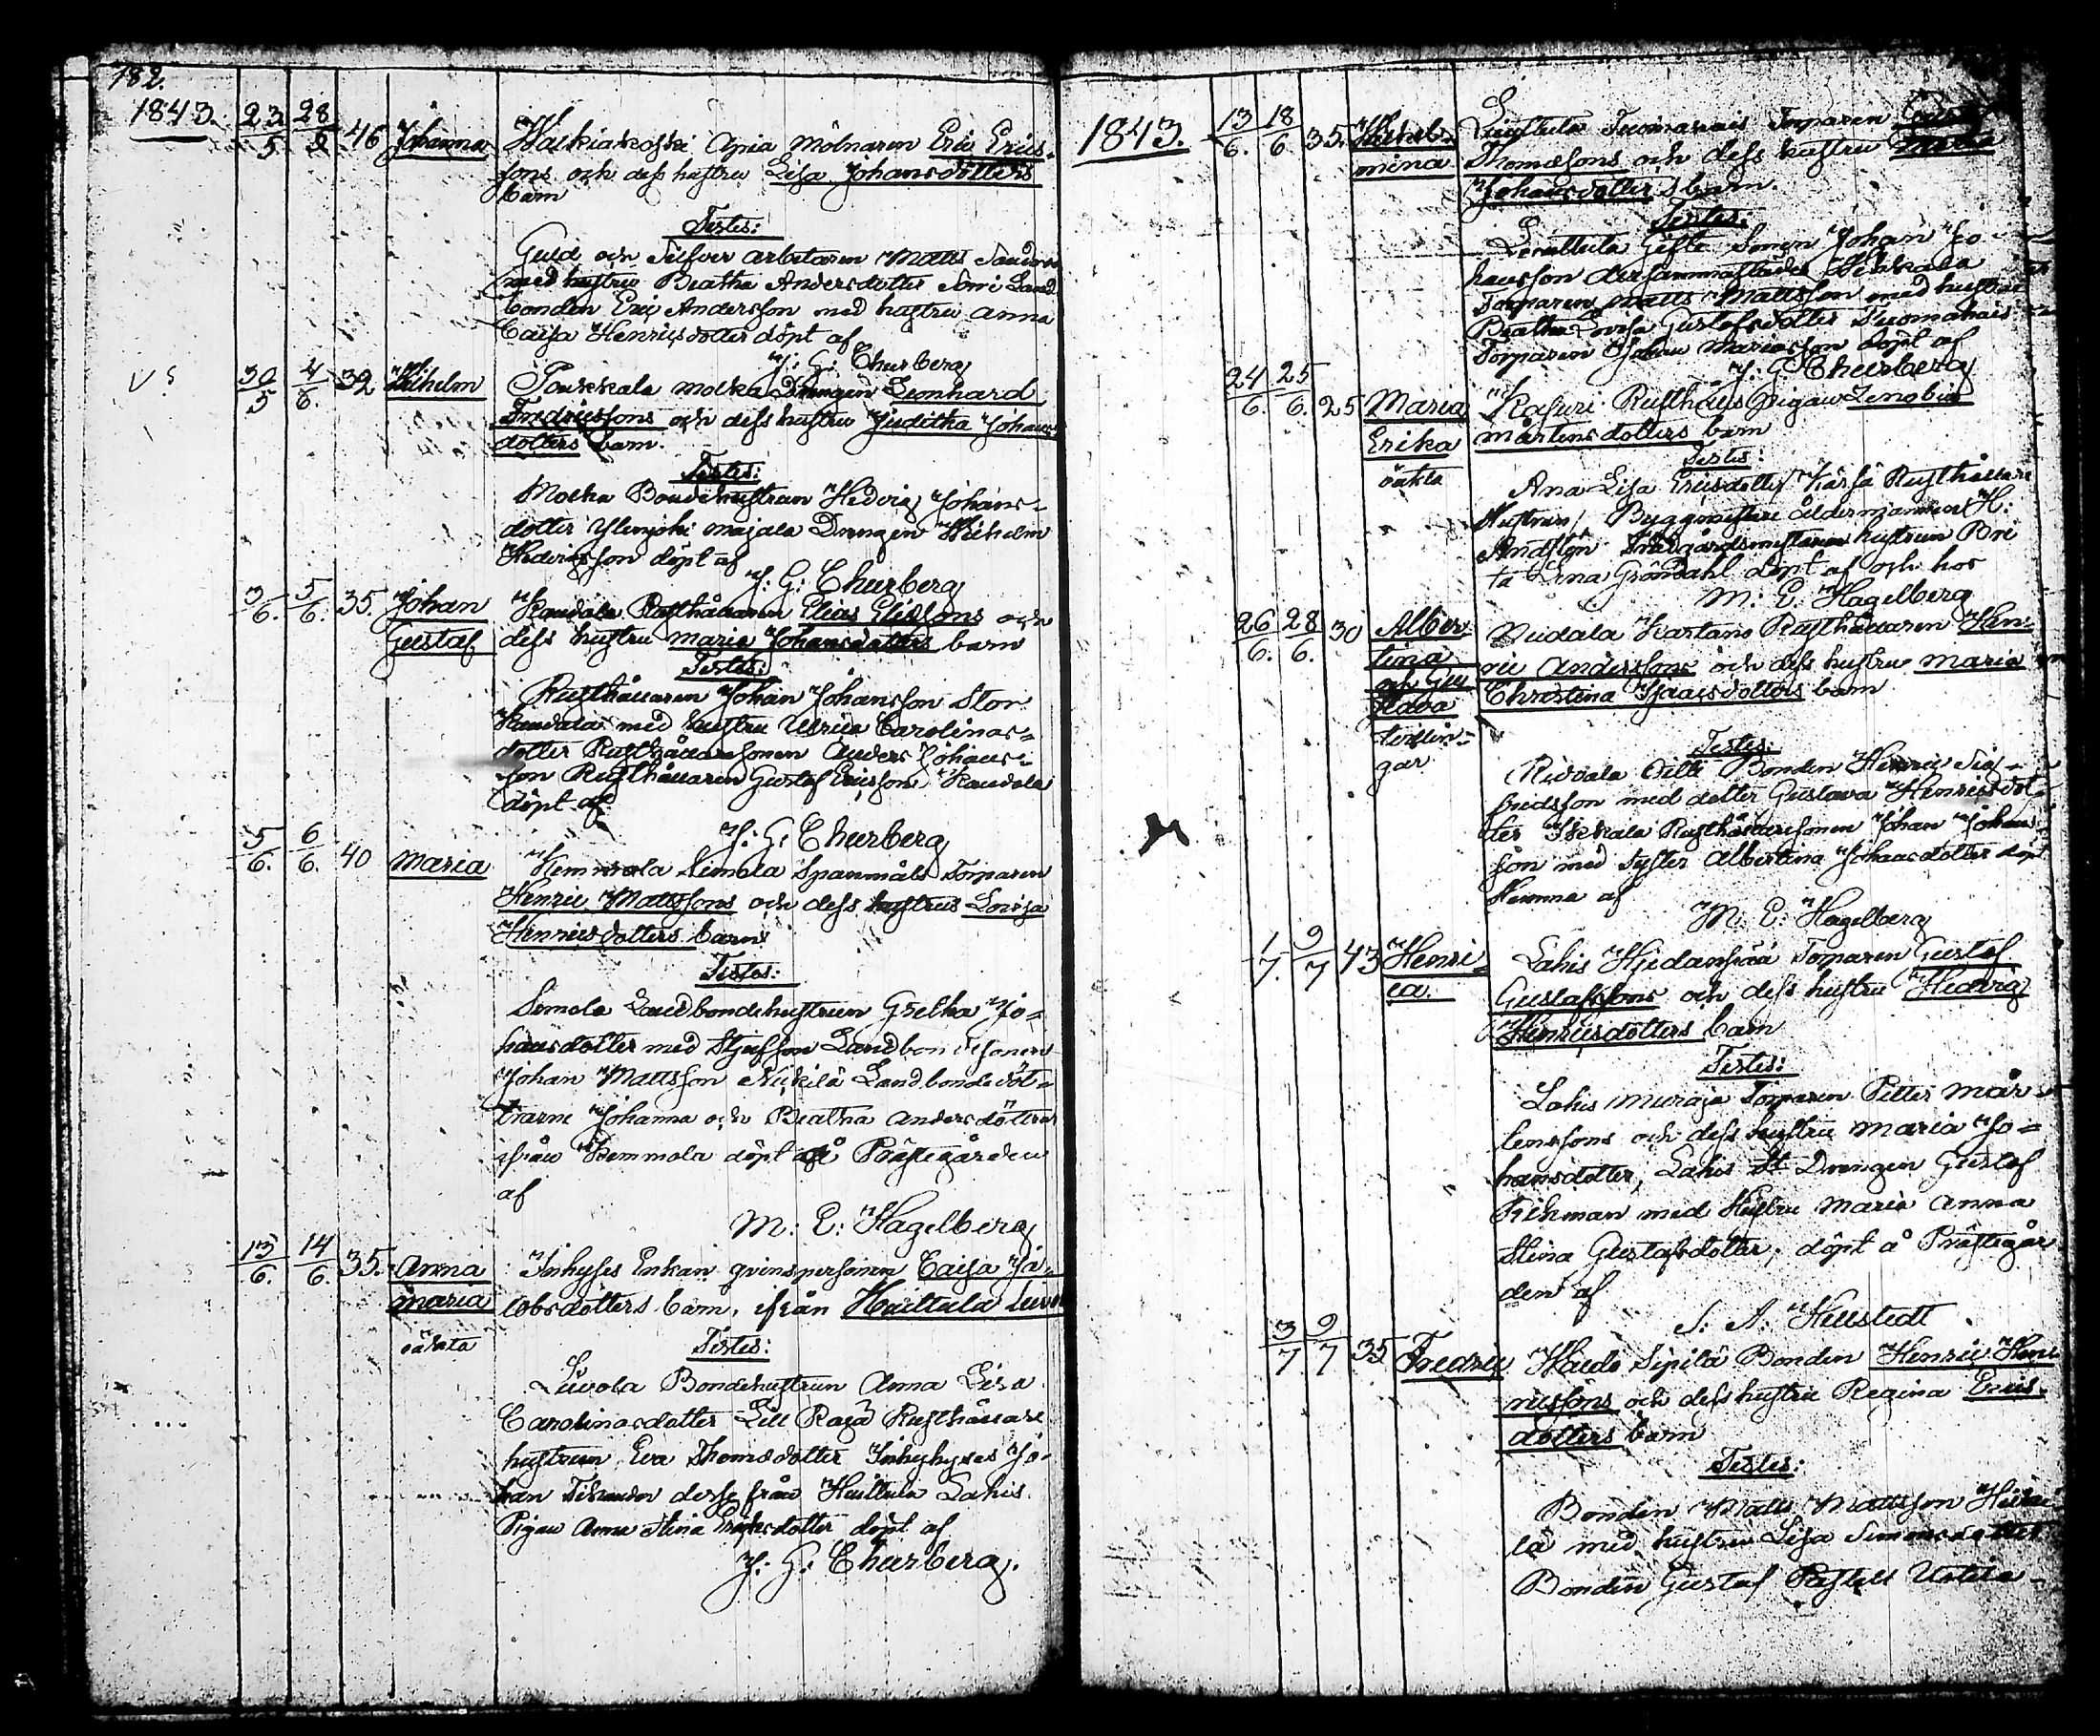 182.
1843. 23/5 28/5 46 Johanna Walkiakoski Apia Mölnaren Eric Erics-
sons och dess hustru Lisa Johansdotters
barn
Testes:
Guld och Silfver arbetaren Matts
med hustru Beatha Andersdotter Land
bonden Eric Andersson med hustru Anna
Caisa Henricsdotter döpt af
J: G: Churberg
30/5 4/6. 32 Wilhelm Drengen Leonhard
Fredricssons och dess hustru Juditha Johans
dotters barn.
Testes:
Bondehustrun Hedvig Johans-
dotter Ylenjoki majala Drengen Wilhelm
Hedricsson döpt af
J: G: Churberg
3/6. 5/6. 35. Johan Kaudala Rusthållaren Elias Eliæsons och
Gustaf dess hustru Maria Johansdotters barn
Testes:
Rusthållaren Johan Johansson Stor
Kaudala med hustru Ulrica Carolinas-
dotter Rusthållaresonen Anders Johans-
son Rusthållaren Gustaf Ericsson Kaudala
döpt af
J: G: Churberg
5/6. 6/6. 40 Maria Kemmola Simola Spanmåls Torparen
Henric Mattssons och dess hustrus Lovisa
Henricsdotters barn
Testes:
Simola Landbondehustrun Grelha Jo-
hansdotter med Stjufson Landbondesonen
Johan Mattsson Nickilä Landbondedöt-
trarne Johanna och Beatha Andersdöttrar
ifrån Kemmola döpt å Prästegården
af
M: E: Hagelberg
13/6. 14/6. 35. Anna Inhyses Enkan qvinspersonen Caisa Ja-
Maria cobsdotters barn, ifrån Huittula
oäkta Testes:
Liuvola Bondehustrun Anna Lisa
Carolinasdotter Lill Raijä Rusthållare
hustrun Eva Thomædotter Inhyses Jo-
han från Huittula Lahis
Pigan Anna Stina döpt af
J: G: Churberg.
1843. 13/6. 18/6. 35. Torparen
mina Thomæsons och dess hustru Maria
Johansdotters barn.
Testes:
Gifte Sonen Johan Jo-
hansson dersammastädes
Torparen Matts Mattsson med hustru
Beatha Lovisa Gustafsdotter
Torparen Johan döpt af
J: G: Churberg
24/6. 25/6. 25 Maria Rusthålls Pigan Zenobia
Erika Mårtensdotters barn
oäkta Testes:
Ana Lisa Ericsdotter Kärsä Rusthållare
Hustrun, Byggmästare åldermannen H:
hustrun Bri
ta Lena Gröndahl döpt af och hos
M: E. Hagelberg
26/6. 28/6. 30 Alber- Kartano Rusthållaren Hen-
tina ric Anderssons och dess hustru Maria
och Gus Christina Isaacsdotters barn
tava
tvillin- Testes:
gar Bonden Henric Sig-
fredsson med dotter Gustava Henricsdot-
ter Rusthållaresonen Johan Johans
son med Syster Albertina Johansdotter döpt
hemma af
M: E: Hagelberg
1/7. 9/7 43 Henri- Lahis Torparen Gustaf
ca. Gustafssons och dess hustru Hedvig
Henricsdotters barn
Testes:
Lahis Muraja Torparen Petter Mår-
tenssons och dess hustru Maria Jo-
hansdotter, Lahis Drengen Gustaf
med Hustru Maria Anna
Stina Gustafsdotter, döpt å Prästegår
den af
S: A: Hellstedt
3/7 9/7 35 Fredric Sipilä Bonden Henric Hen-
ricssons och dess hustru Regina Erics-
dotters barn
Testes:
Bonden Matts Mattsson
lä med hustru Lisa Simonsdotter
Bonden Gustaf